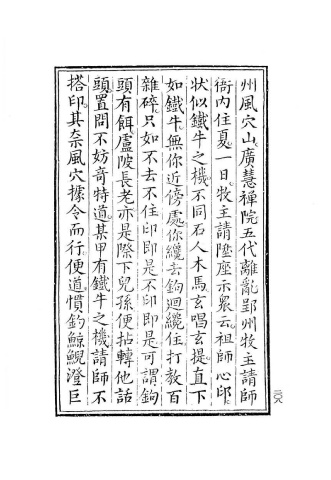 州風穴山廣慧禪院五代離亂郢州牧主請師
衙內住夏一日牧主請陞座示眾云祖師心印
狀似鐵牛之機不同石人木馬玄唱玄提直下
如鐵牛無你近傍處你纔去鉤迴纔住打教百
雜碎只如不去不住印即是不印即是可謂鉤
頭有餌盧陂長老亦是際下兒孫便拈轉他話
頭置問不妨奇特道某甲有鐵牛之機請師不
搭印其奈風穴據令而行便道慣釣鯨鯢澄巨
二〇八